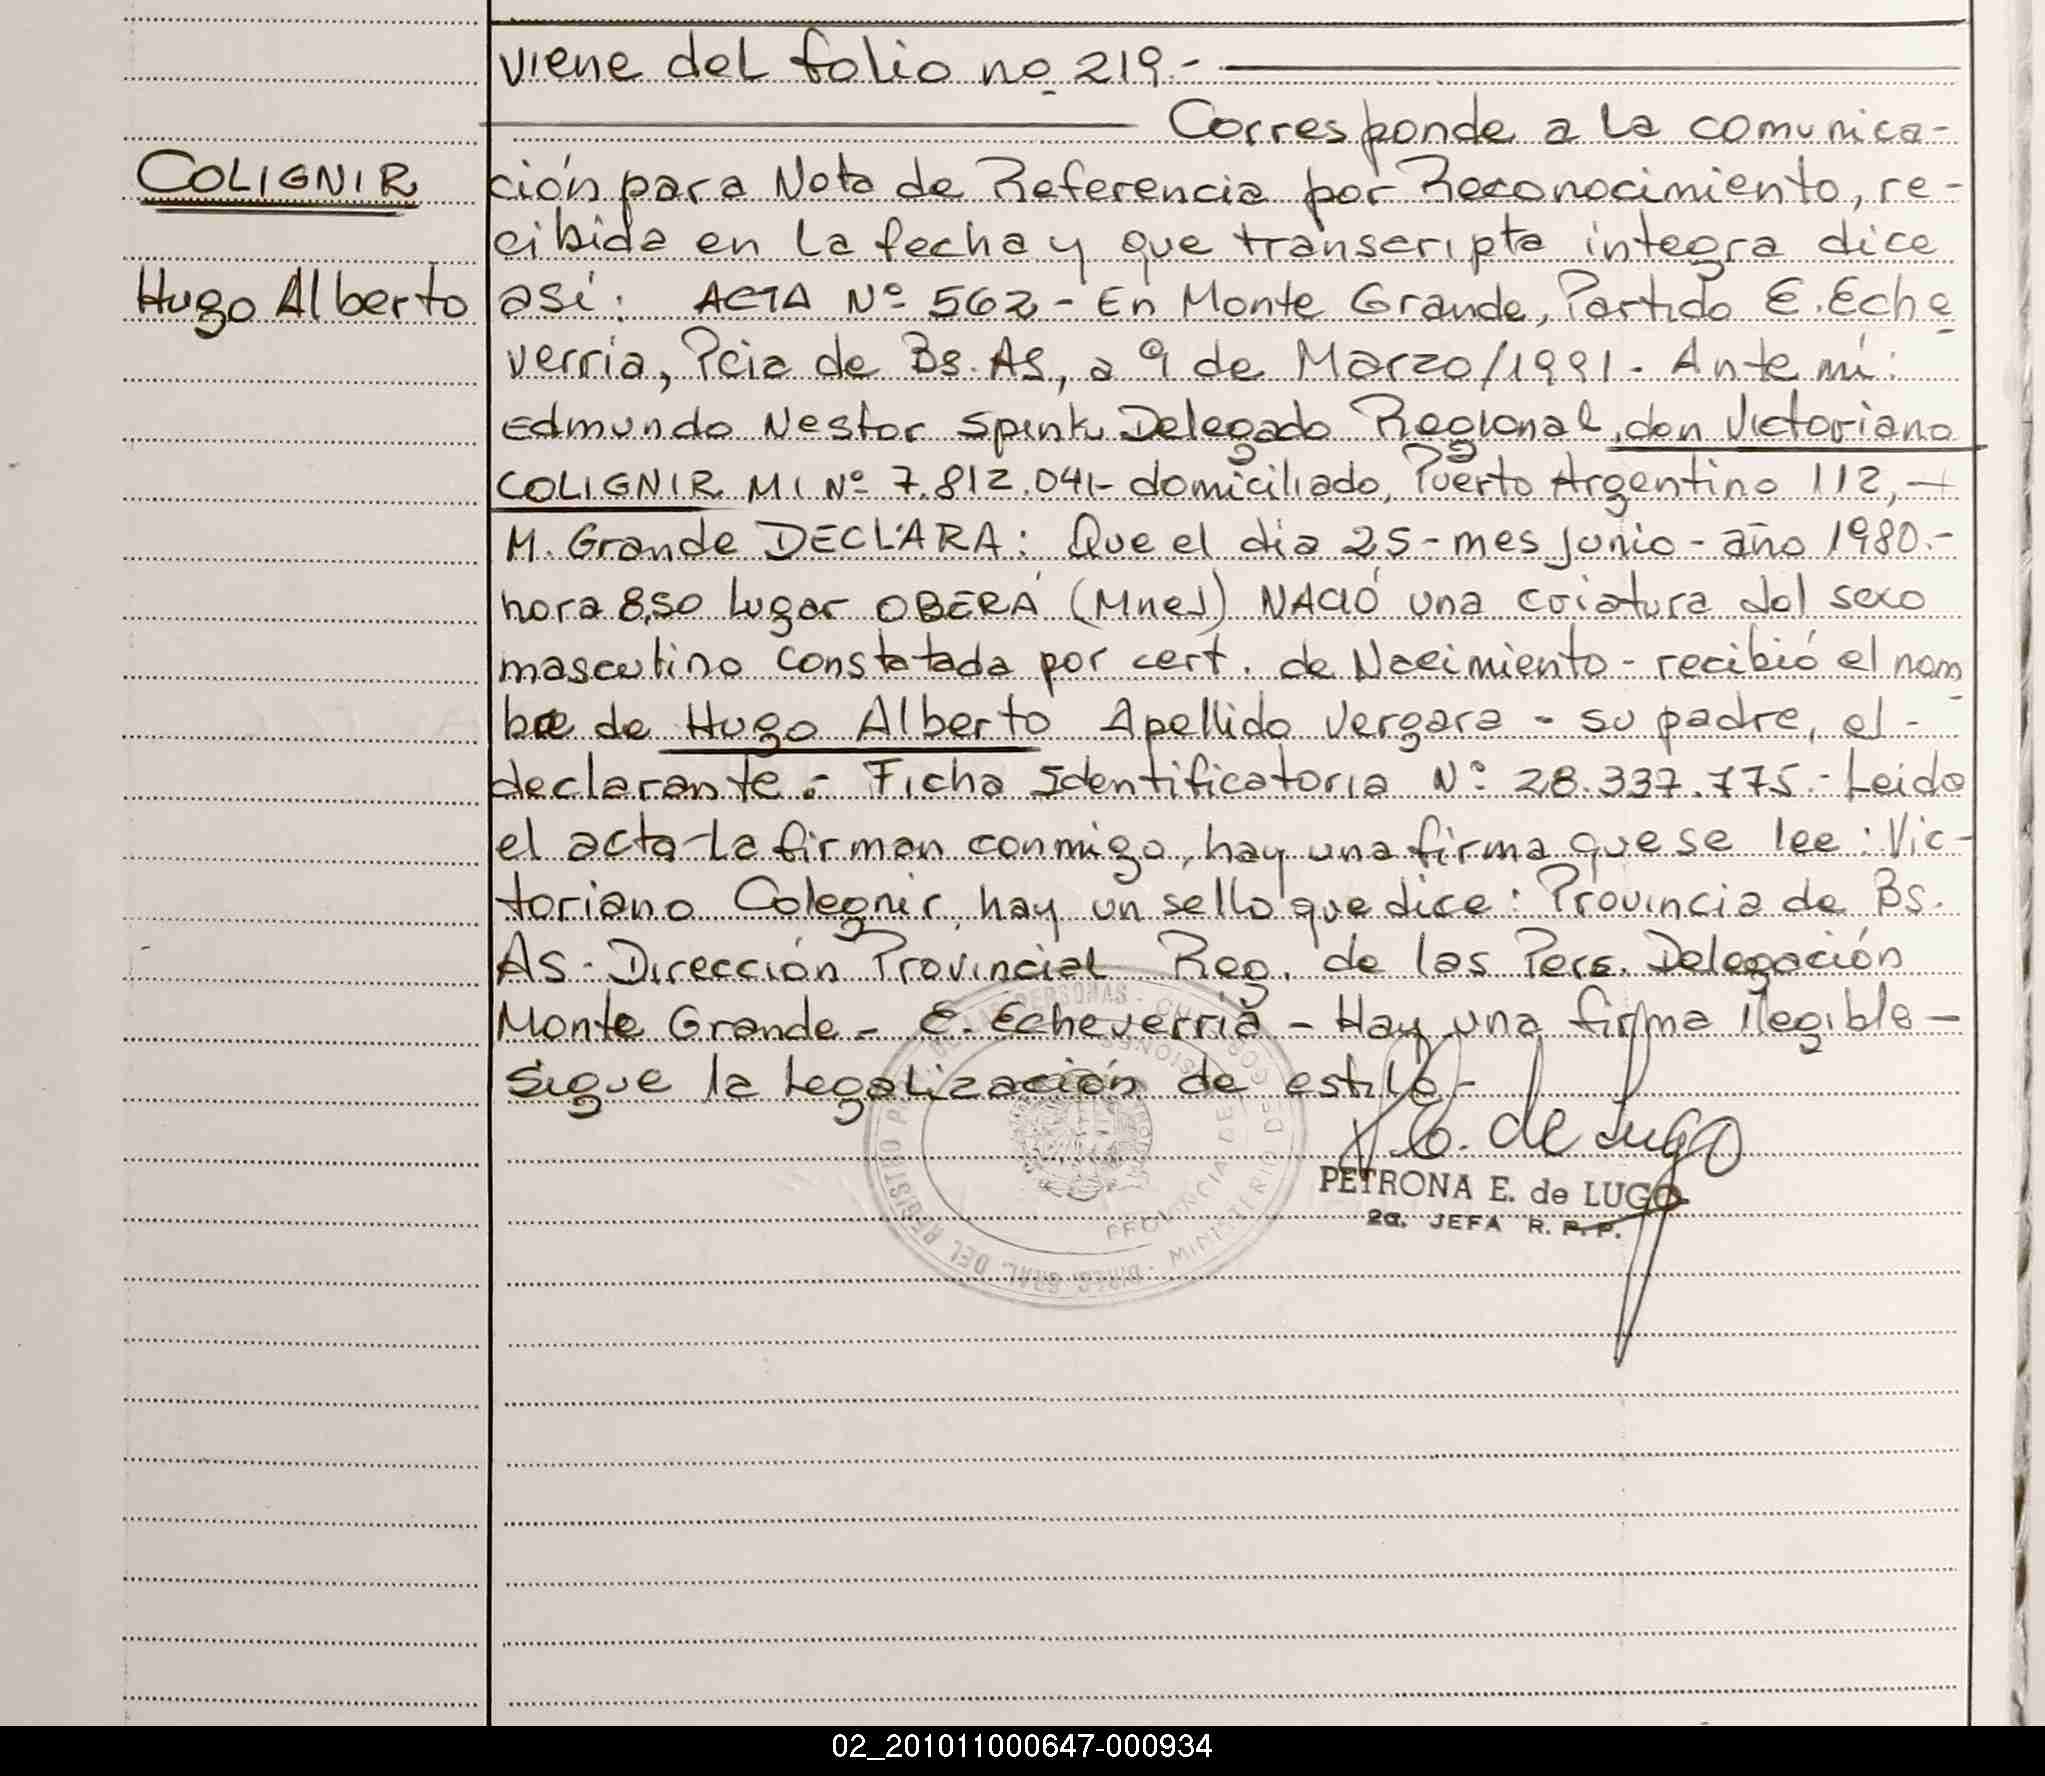 viene del folio nº 219.-
Corresponde a la comunica-
COLIGNIR
ción para Nota de Referencia por Reconocimiento, re-
cibida en la fecha y que transcripta integra dice
Hugo Alberto
así: ACTA Nº 562 - En Monte Grande, Partido E. Eche
verría, Pcia de Bs. As, a 9 de Marzo/1991. Ante mí:
Edmundo Nestor Spink Delegado Regional, don Victoriano
COLIGNIR MI Nº 7.812.041- domiciliado, Puerto Argentino 112,-
M. Grande DECLARA: Que el dia 25- mes junio - año 1980.-
hora 8,50 lugar OBERÁ (Mnes) NACIÓ una criatura del sexo
masculino constatada por cert. de Nacimiento - recibió el nom
bre de Hugo Alberto Apellido Vergara - su padre, el -
declarante.- Ficha Identificatoria Nº 28.337.775.- Leido
el acta-la firman conmigo, hay una firma que se lee: Vic-
toriano Colegnir, hay un sello que dice: Provincia de Bs.
As - Dirección Provincial Reg. de las Pers. Delegación
Monte Grande - E. Echeverría - Hay una firma ilegible -
sigue la legalización de estilo-
P. E. de Lugo
PETRONA E. de LUGO
2a. JEFA R. P. P.
DIREC. GRAL. DEL REGISTRO P. DE LAS PERSONAS -
MINISTERIO DE GOB.
PROVINCIA DE MISIONES
02_201011000647-000934